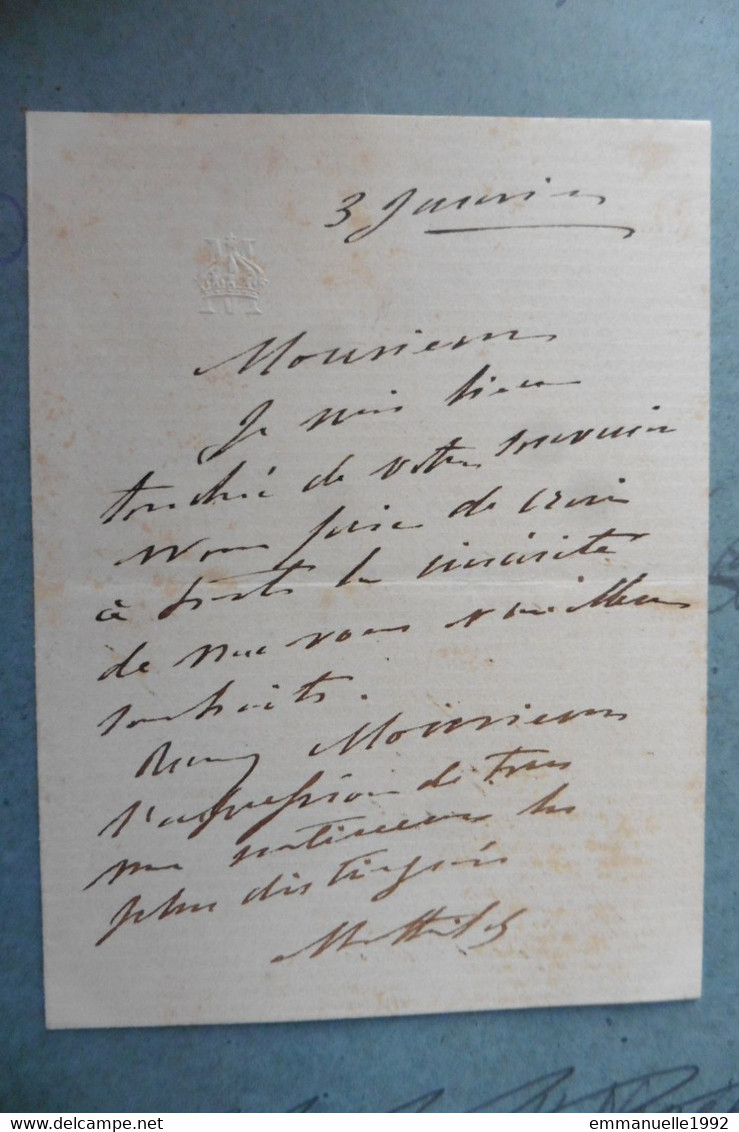 3 Janvier
M
Monsieur
Je suis bien
touchée de votre souvenir
Vous prie de croire
à toute la sincérité
de mes vœux & meilleurs
souhaits.
Recevez Monsieur
l'expression de tous
mes sentiments les
plus distingués
Mathilde
delcampe.net
emmanuelle1992